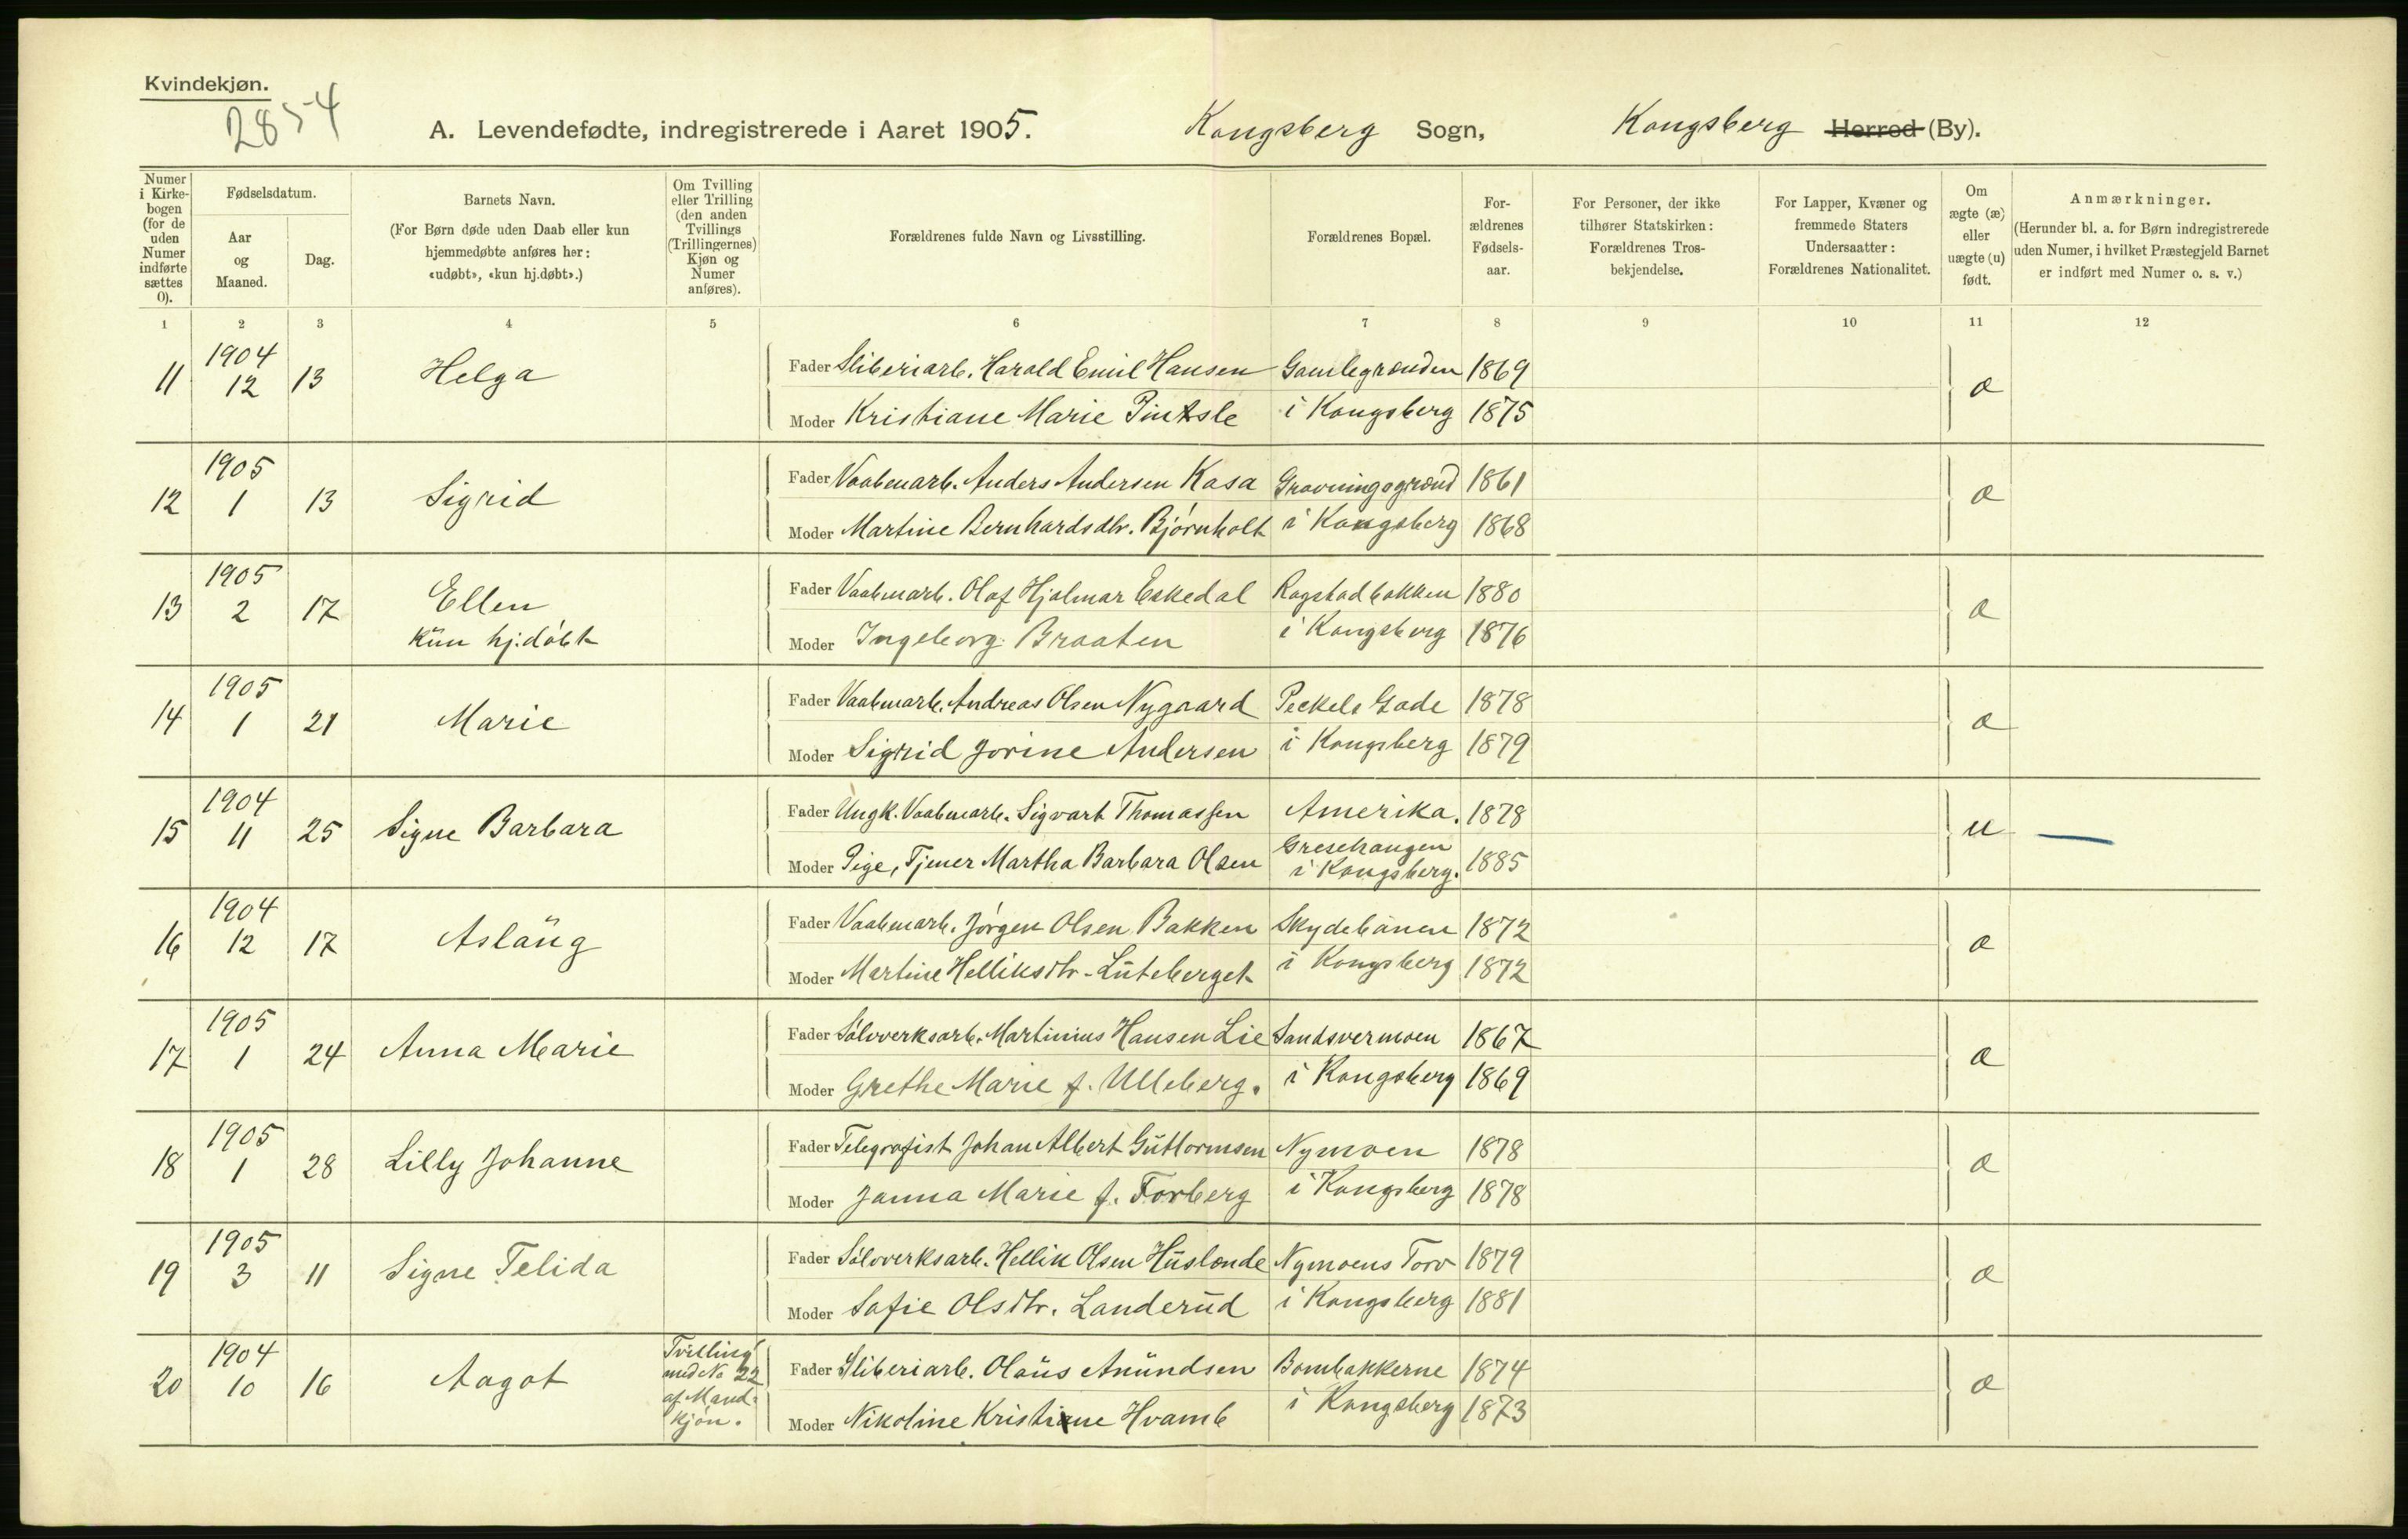 Kvindekjøn.
2854
A. Levendefødte, indregistrerede i Aaret 1905. Kongsberg Sogn, Kongsberg Herred (By).
Numer i Kirkebogen (for de uden Numer indførte sættes 0).
Fødselsdatum.
Aar og Maaned.
Dag.
Barnets Navn.
(For Børn døde uden Daab eller kun hjemmedøbte anføres her: «udøbt», «kun hj.døbt».)
Om Tvilling eller Trilling (den anden Tvillings (Trillingernes) Kjøn og Numer anføres).
Forældrenes fulde Navn og Livsstilling.
Forældrenes Bopæl.
Forældrenes Fødselsaar.
For Personer, der ikke tilhører Statskirken: Forældrenes Trosbekjendelse.
For Lapper, Kvæner og fremmede Staters Undersaatter: Forældrenes Nationalitet.
Om ægte (æ) eller uægte (u) født.
Anmærkninger.
(Herunder bl. a. for Børn indregistrerede uden Numer, i hvilket Præstegjeld Barnet er indført med Numer o. s. v.)
1 2 3 4 5 6 7 8 9 10 11 12
11 1904 12 13 Helga Fader Sliberiarb. Harald Emil Hansen Gamlegrænden 1869 æ
Moder Kristiane Marie Pintsle i Kongsberg 1875
12 1905 1 13 Sigrid Fader Vaabenarb. Anders Andersen Kasa Gravningsgrænd 1861 æ
Moder Martine Bernhardsdtr. Bjørnholt i Kongsberg 1868
13 1905 2 17 Ellen Fader Vaabenarb. Olaf Hjalmar Eskedal Rogstadbakken 1880 æ
kun hj.døbt Moder Ingeborg Braaten i Kongsberg 1876
14 1905 1 21 Marie Fader Vaabenarb. Andreas Olsen Nygaard Peckels Gade 1878 æ
Moder Sigrid Jorine Andersen i Kongsberg 1879
15 1904 11 25 Signe Barbara Fader Ungk. Vaabenarb. Sigvart Thomassen Amerika. 1878 u
Moder Pige, Tjener Martha Barbara Olsen Gresehaugen i Kongsberg. 1885
16 1904 12 17 Aslaug Fader Vaabenarb. Jørgen Olsen Bakken Skydebanen 1872 æ
Moder Martine Helliksdtr. Luteberget i Kongsberg 1872
17 1905 1 24 Anna Marie Fader Sølvverksarb. Martinius Hansen Lie Sandsvermoen 1867 æ
Moder Grethe Marie f. Ulleberg. i Kongsberg 1869
18 1905 1 28 Lilly Johanne Fader Telegrafist Johan Albert Guttormsen Nymoen 1878 æ
Moder Janna Marie f. Forberg i Kongsberg 1878
19 1905 3 11 Signe Telida Fader Sølvverksarb. Hellik Olsen Huslende Nymoens Torv 1879 æ
Moder Sofie Olsdtr. Landerud i Kongsberg 1881
20 1904 10 16 Aagot Tvilling med No 22 af Mandkjøn. Fader Sliberiarb. Olaus Amundsen Bombakkerne 1874 æ
Moder Nikoline Kristiane Hvamb i Kongsberg 1873